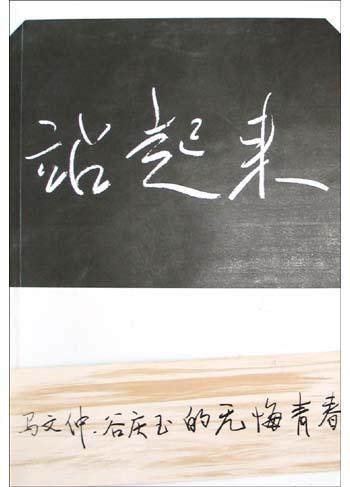 站起来
马文仲.谷庆玉的无悔青春